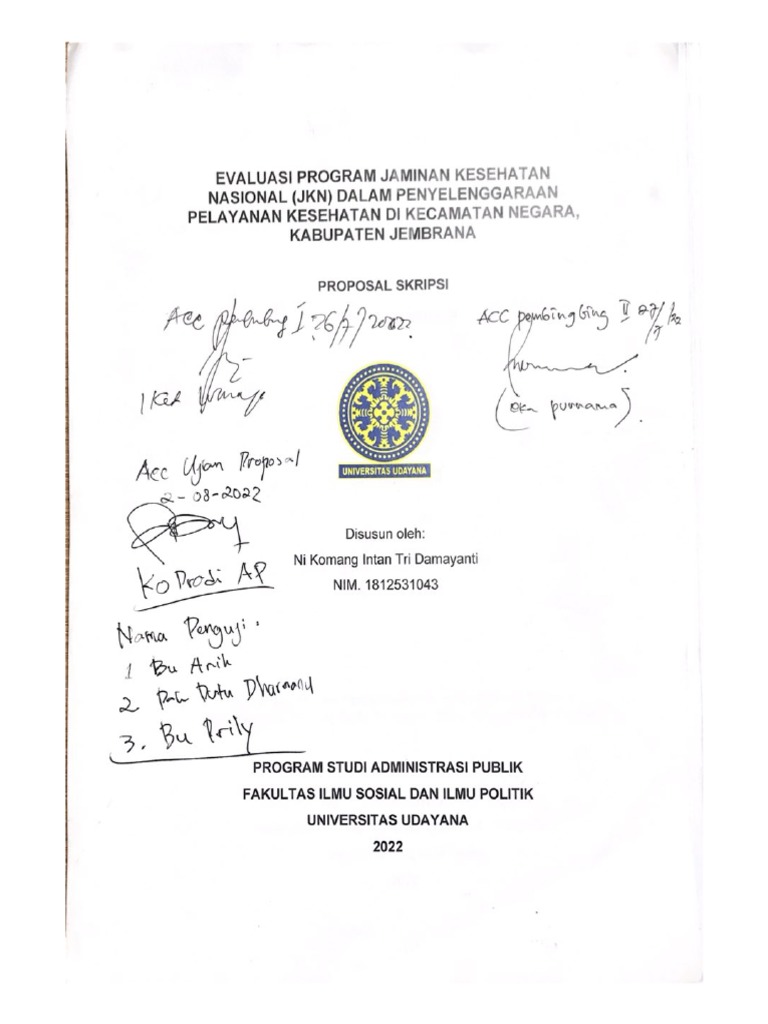 EVALUASI PROGRAM JAMINAN KESEHATAN
NASIONAL (JKN) DALAM PENYELENGGARAAN
PELAYANAN KESEHATAN DI KECAMATAN NEGARA,
KABUPATEN JEMBRANA
PROPOSAL SKRIPSI
Acc I 26/7/2022
ACC pembingbing II 27/7/22
I Ket
(Oka purnama).
UNIVERSITAS UDAYANA
Acc Ujian Proposal
2-08-2022
Disusun oleh:
Ni Komang Intan Tri Damayanti
NIM. 1812531043
KoProdi AP
Nama Penguji:
1 Bu Anik
2 Pak Putu
3. Bu Prily
PROGRAM STUDI ADMINISTRASI PUBLIK
FAKULTAS ILMU SOSIAL DAN ILMU POLITIK
UNIVERSITAS UDAYANA
2022